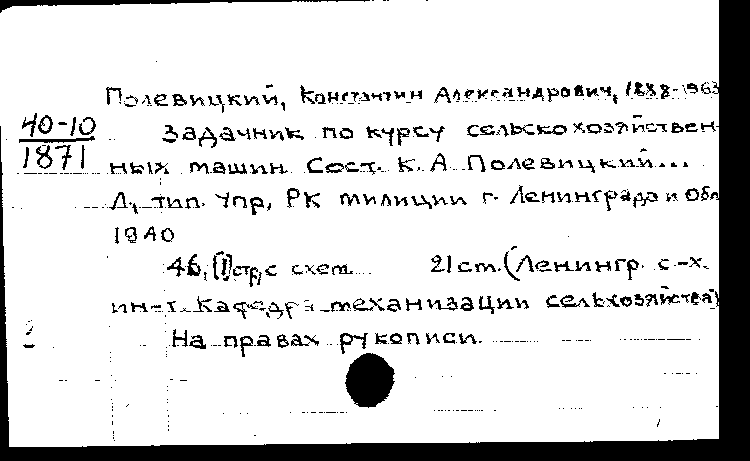 Полевицкий, Константин Александрович, 1888-1963
40-10
1871
Задачник по курсу сельскохозяйствен-
ных машин. Сост. К. А. Полевицкий...
Л, тип. Упр, РК милиции г. Ленинграда и Обл
1940
46, [1] стр, с схем. 21 см. (Ленингр. с-х.
ин-т. Кафедра механизации сельхозяйства)
2
На правах рукописи.